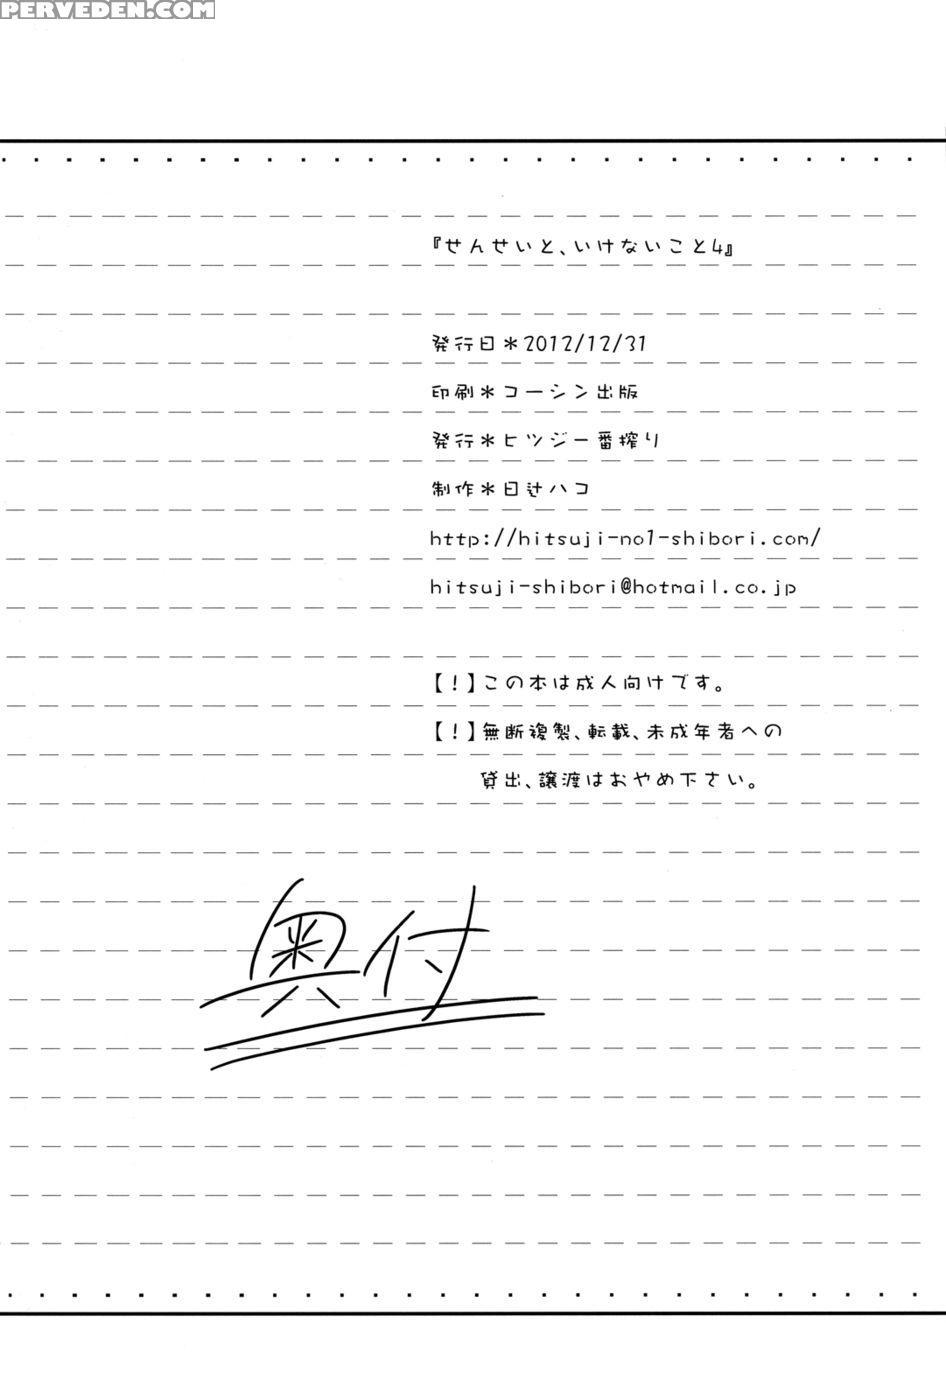 PERVEDEN.COM
『せんせいと、いけないこと4』
発行日＊2012/12/31
印刷＊コーシン出版
発行＊ヒツジ一番搾り
制作＊日辻ハコ
http://hitsuji-no1-shibori.com/
hitsuji-shibori@hotmail.co.jp
【！】この本は成人向けです。
【！】無断複製、転載、未成年者への
貸出、譲渡はおやめ下さい。
奥付